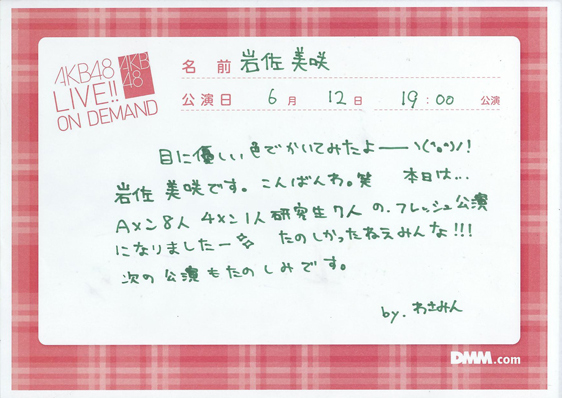 AKB48
LIVE!!
ON DEMAND
AKB
48
名 前 岩佐美咲
公演日 6月 12日 19:00 公演
目に優しい色でかいてみたよーーヽ(^o^)ノ!
岩佐 美咲です。こんばんわ。笑 本日は...
Aメン8人 4メン1人 研究生7人 の、フレッシュ公演
になりましたー☆ たのしかったねえみんな!!!
次の公演もたのしみです。
by. わさみん
DMM.com